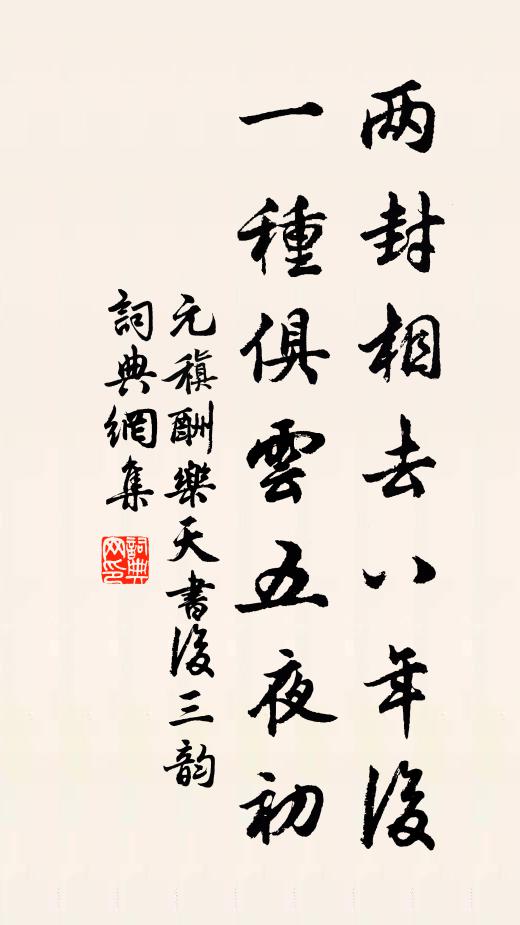 两封相去八年後
一種俱雲五夜初
元稹酬樂天書後三韵
詞典網集
詞典网印